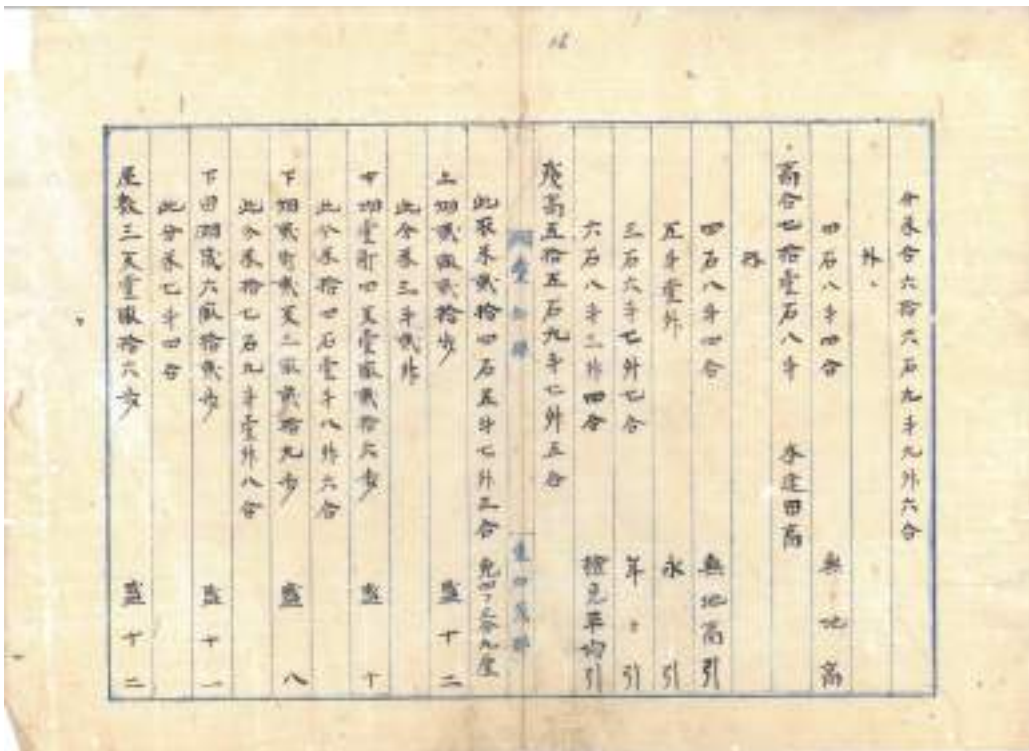 分米合六拾六石九斗九升六合
外、
四石八斗四合 無地高
高合七拾壹石八斗 本途田高
四石八斗四合 無地高引
五斗壹升 永引
三石六斗七升七合 年々引
六石八斗三升四合 検見平均引
残高五拾五石九斗七升五合
此取米貳拾四石五斗七升三合 免四ツ三分九厘
上畑貳畝貳拾歩 盛十二
此分米三斗貳升
中畑壹町四反壹畝貳拾六歩 盛十
此分米拾四石壹斗八升六合
下畑貳町貳反三畝貳拾九歩 盛八
此分米拾七石九斗壹升八合
下田畑成六畝拾貳歩 盛十一
此分米七斗四合
屋敷三反壹畝拾六歩 盛十二